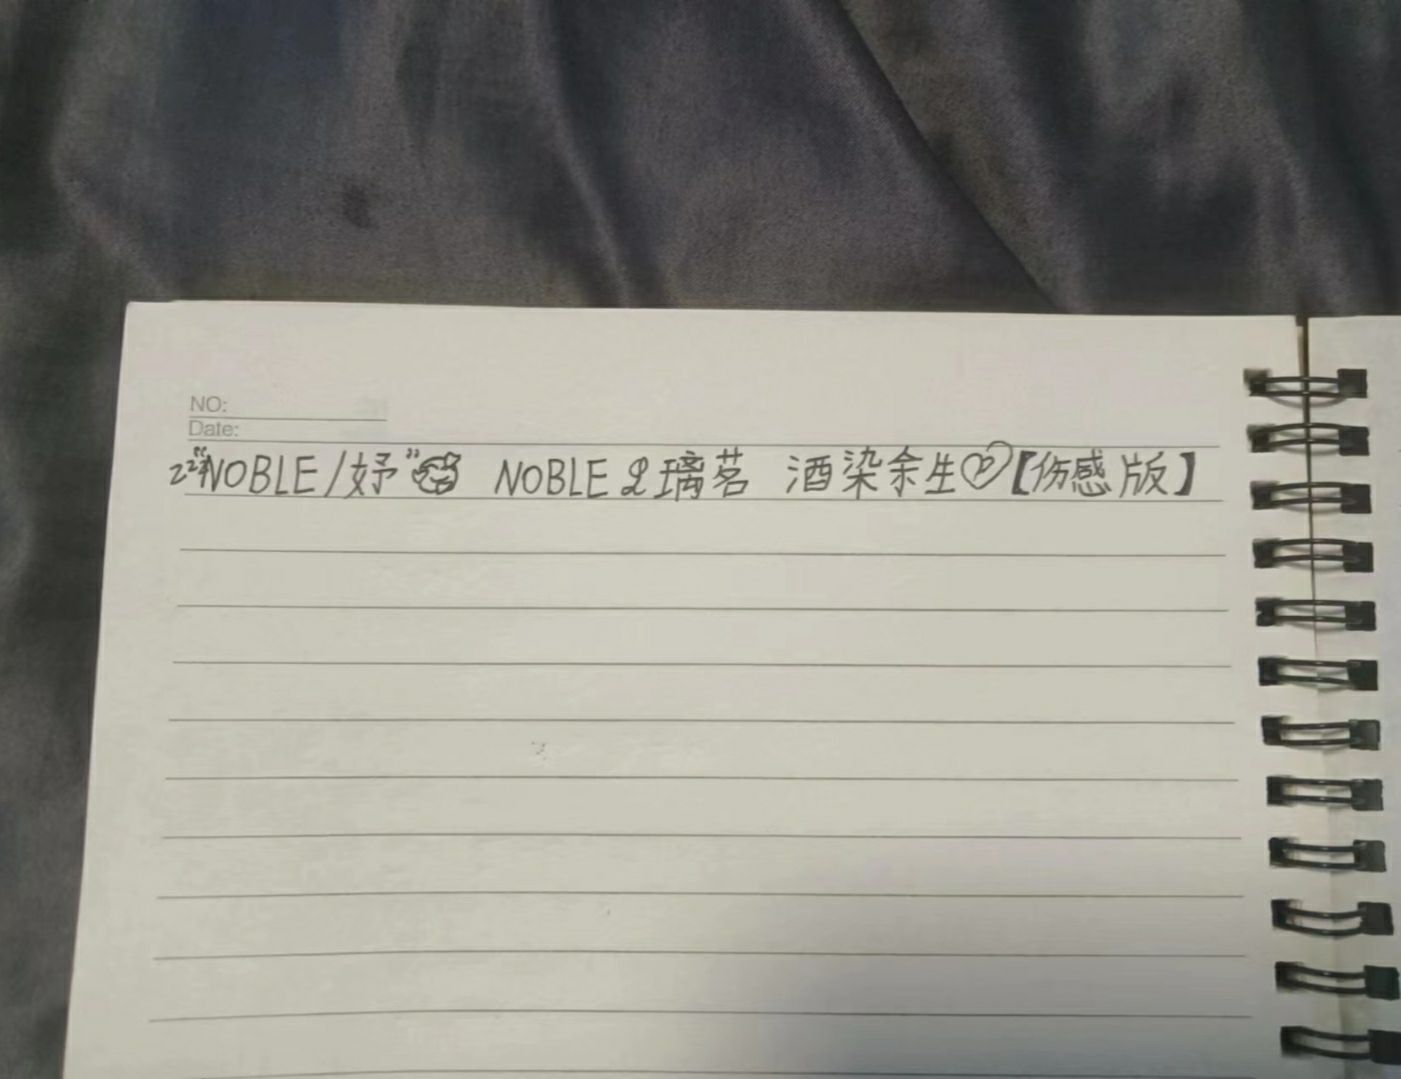 NO:
Date:
zzz"NOBLE/妤" NOBLE&璃茗 酒染余生【伤感版】